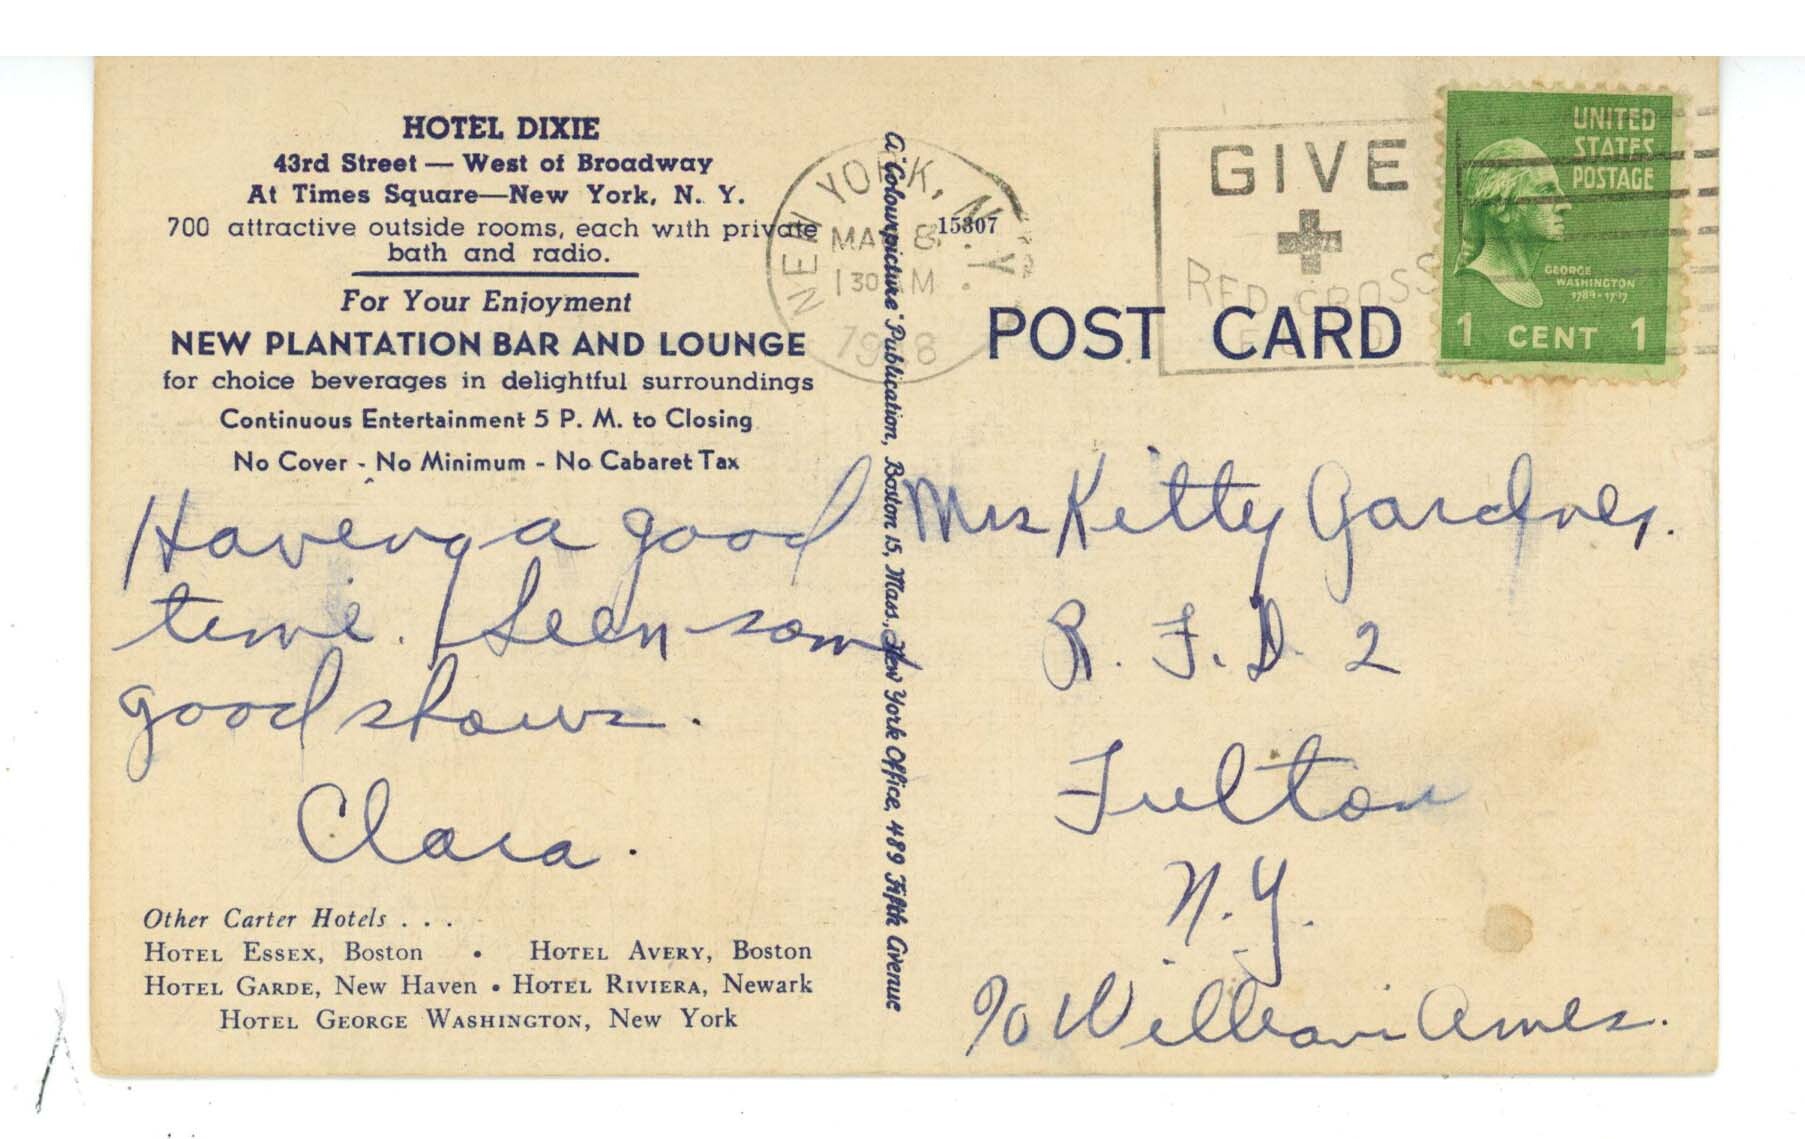 HOTEL DIXIE
43rd Street — West of Broadway
At Times Square—New York, N. Y.
700 attractive outside rooms, each with private
bath and radio.
For Your Enjoyment
NEW PLANTATION BAR AND LOUNGE
for choice beverages in delightful surroundings
Continuous Entertainment 5 P. M. to Closing
No Cover - No Minimum - No Cabaret Tax
Havenga good
time. Seen some
good shows.
Clara.
Other Carter Hotels . . .
HOTEL ESSEX, Boston • HOTEL AVERY, Boston
HOTEL GARDE, New Haven • HOTEL RIVIERA, Newark
HOTEL GEORGE WASHINGTON, New York
A "Colourpicture" Publication, Boston 15, Mass., New York Office, 489 Fifth Avenue
NEW YORK, N.Y.
MAR 8
1 30 AM
15307
GIVE
RED CROSS
UNITED
STATES
POSTAGE
GEORGE
WASHINGTON
1789-1797
1 CENT 1
POST CARD
Mrs Kitty Gardner.
R. F. D. 2
Fulton
N.Y.
c/o William Ames.